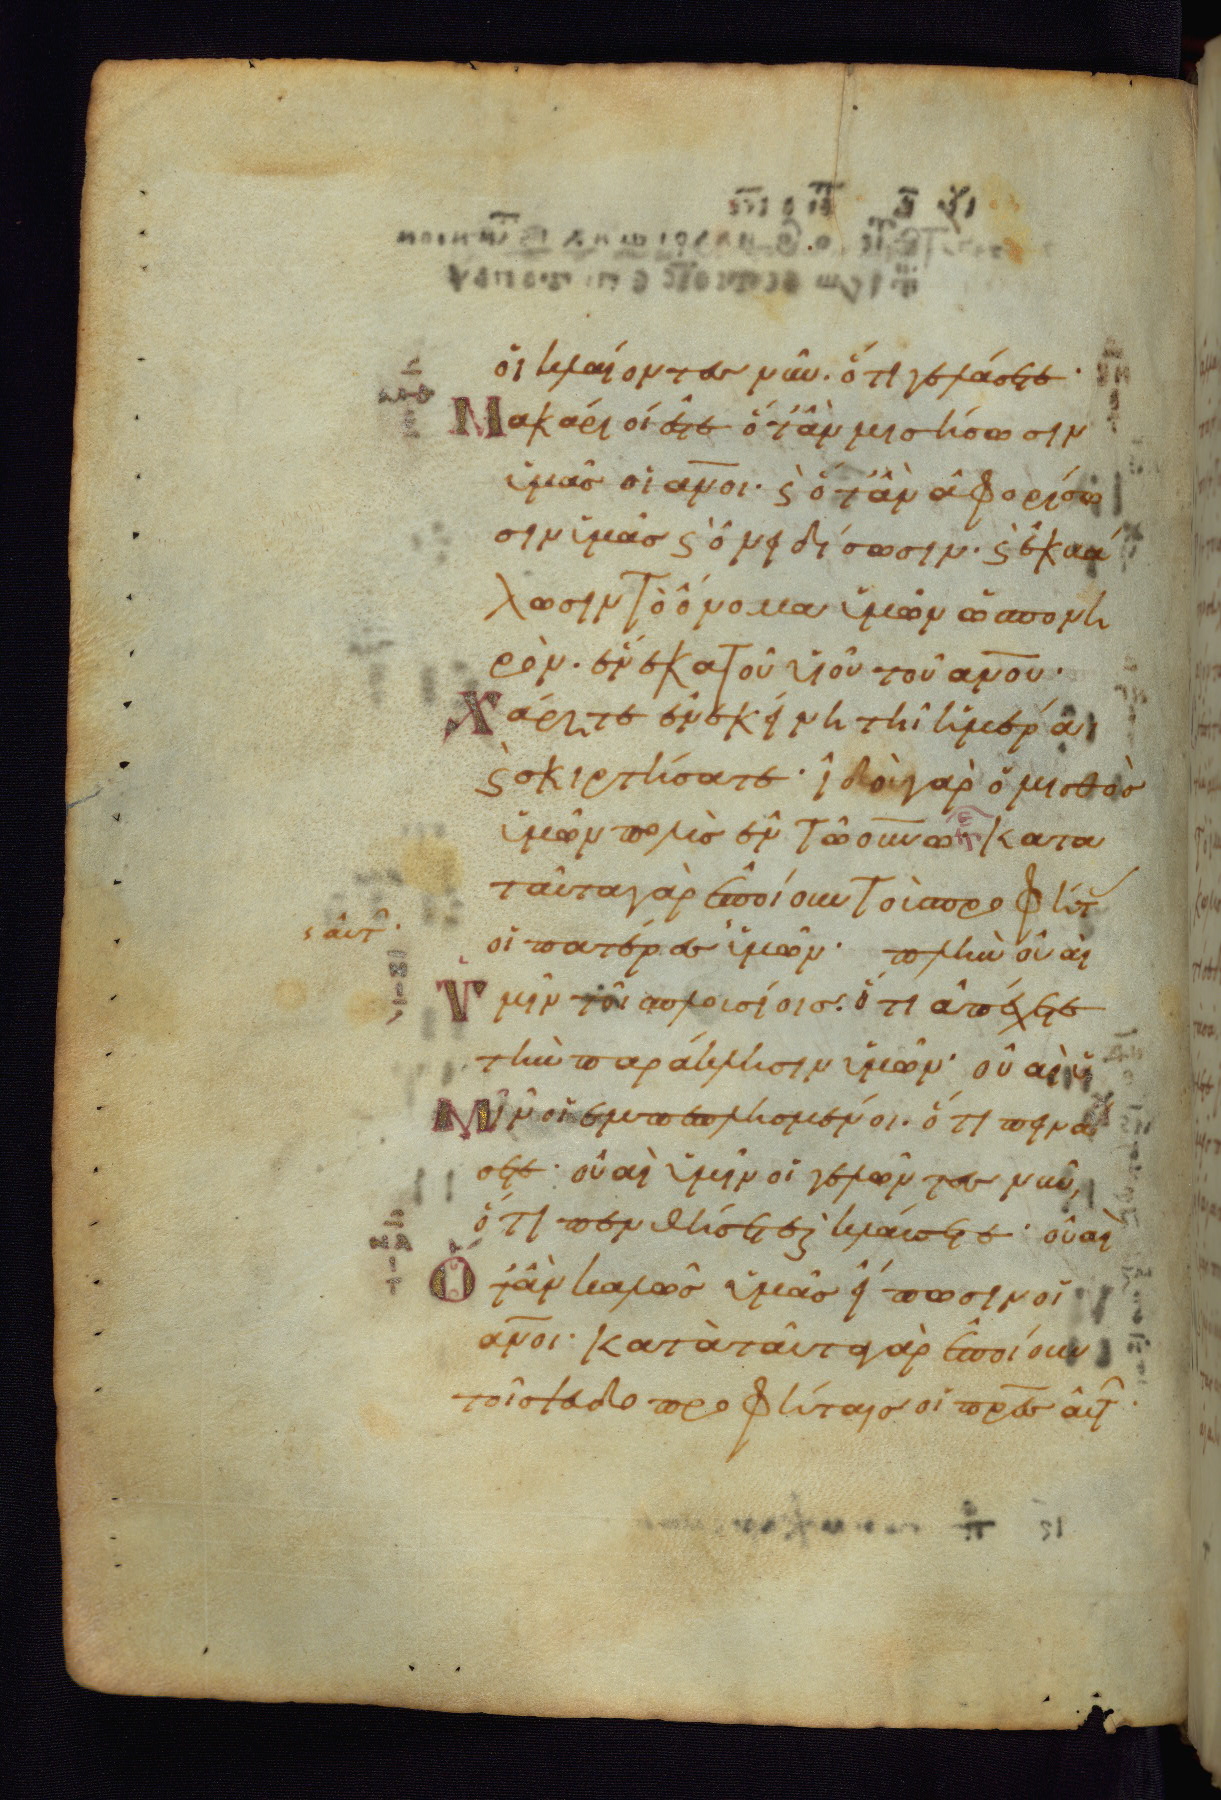 οἱ κλαίοντες νῦν. ὅτι γελάσετε·
Μακάριοί ἐστε ὅταν μισήσωσιν
ὑμᾶς οἱ ανοι· ϛ ὅταν ἀφορίσω
σιν ὑμᾶς ϛ ὀνηδίσωσιν· ϛ ἐκβά
λωσιν τὸ ὄνομα ὑμῶν ὡς πονη
ρὸν· ἕνεκα τοῦ υἱοῦ τοῦ ανου·
Χάρητε ἐν ἐκείνη τῆ ἡμέρα
ϛ σκιρτήσατε· ἰδοὺ γὰρ ὁ μισθὸς
ὑμῶν πολὺς ἐν τῶ ουνω· κατα
ταῦτα γὰρ ἐποίουν τοῖς προφήτ
ϛ αὐτ
οἱ πατέρες ὑμῶν· πλὴν οὐαὶ
Ὑμῖν τοῖς πλουσίοις· ὅτι ἀπέχετε
τὴν παράκλησιν ὑμῶν· οὐαὶ ὑ
Μῖν οἱ ἐμπεπλησμένοι. ὅτι πεινά
σετε· οὐαὶ ὑμῖν οἱ γελῶντες νῦν,
ὅτι πενθήσετε ϛ κλαύσετε· οὐαὶ
Ὅταν καλῶς ὑμᾶς εἴπωσιν οἱ
ανοι· κατὰ ταῦτα γὰρ ἐποίουν
τοῖς ψευδοπροφήταις οἱ πρες αὐτ·